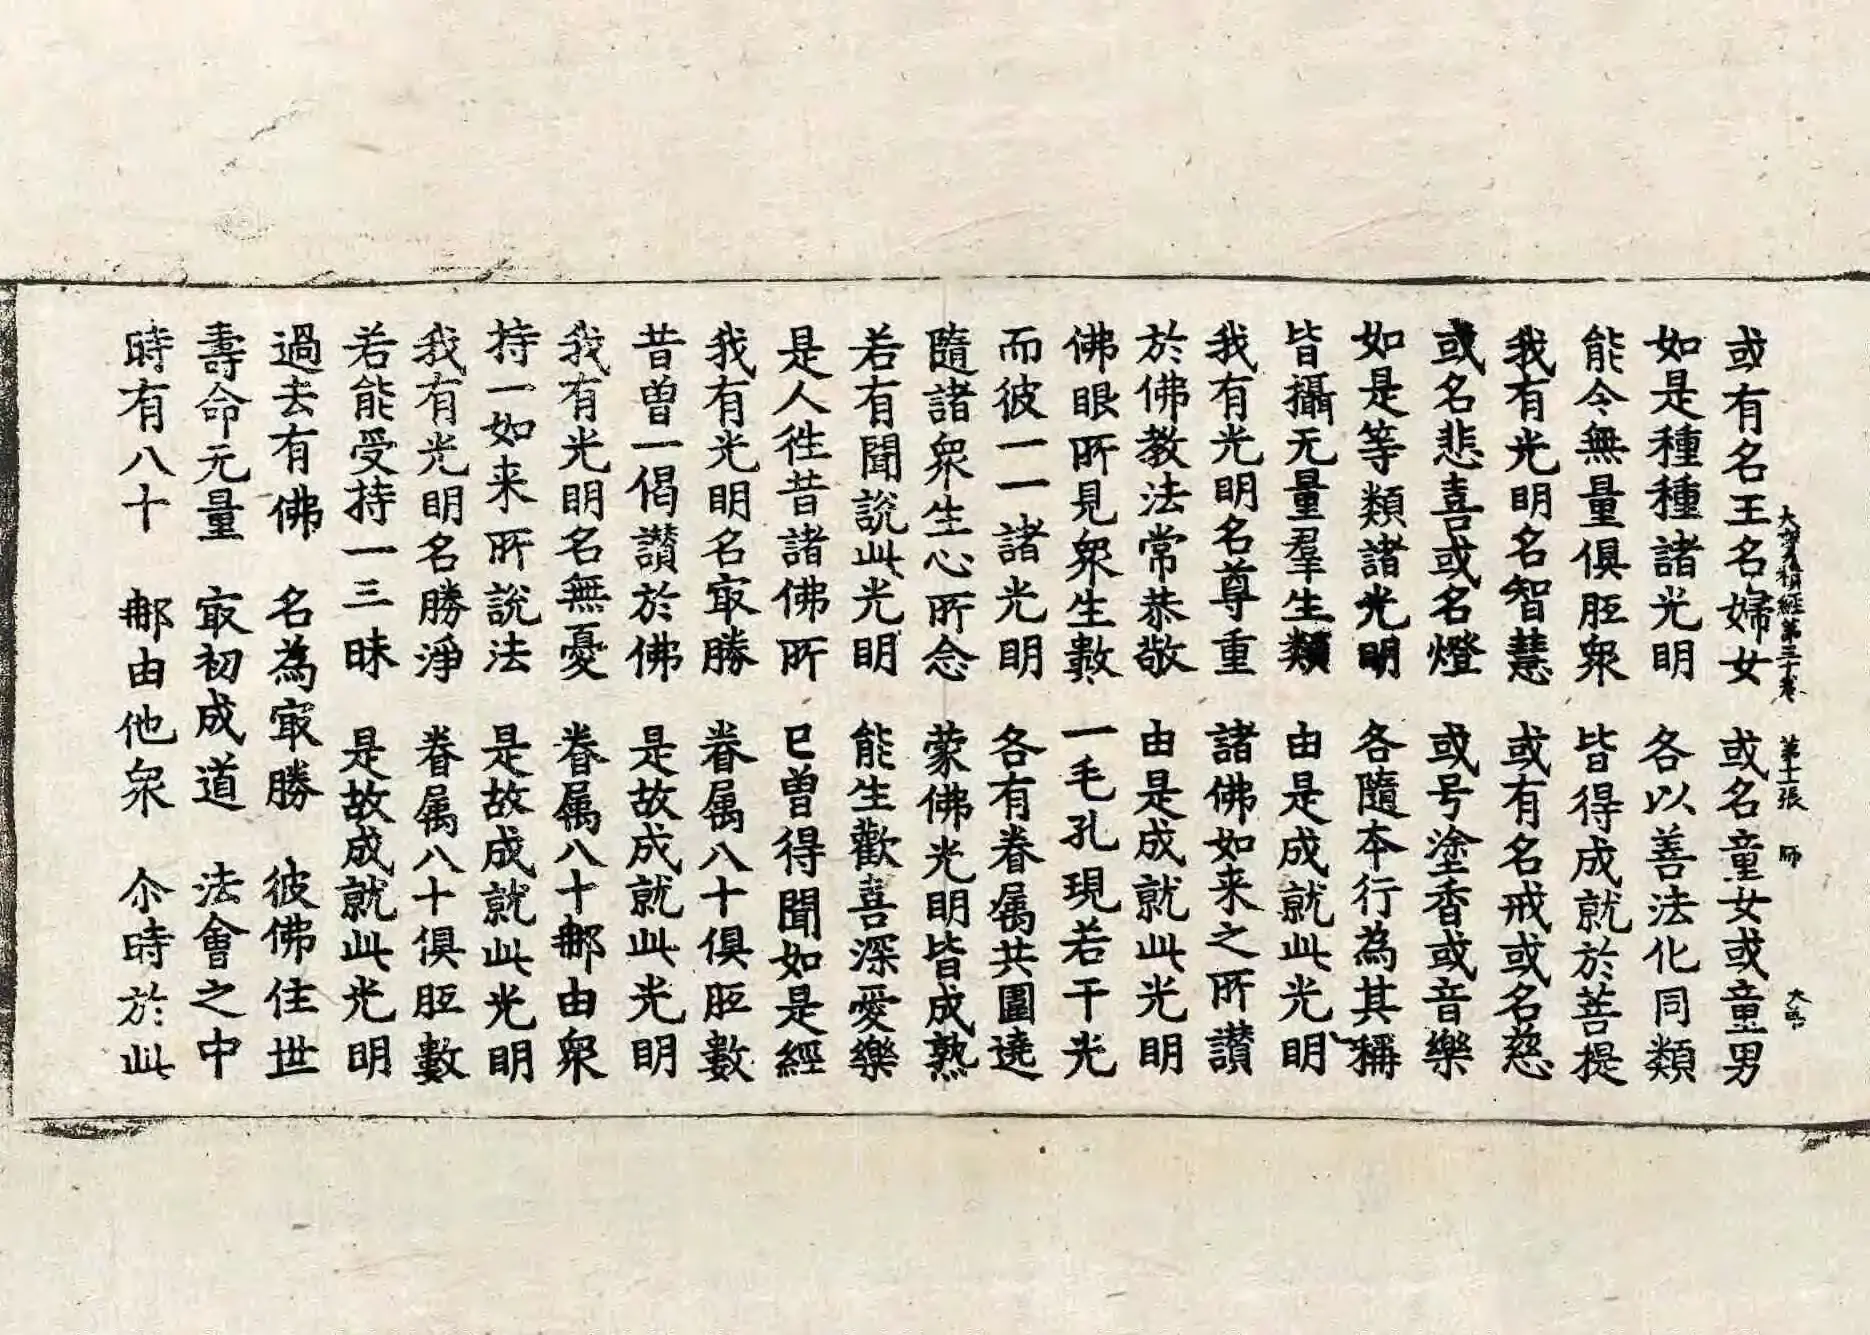 大寶積經第三十卷 第十一張 師
或有名王名婦女 或名童女或童男
如是種種諸光明 各以善法化同類
能令無量俱胝衆 皆得成就於菩提
我有光明名智慧 或有名戒或名慈
或名悲喜或名燈 或号塗香或音樂
如是等類諸光明 各隨本行為其稱
皆攝无量羣生類 由是成就此光明
我有光明名尊重 諸佛如来之所讃
於佛教法常恭敬 由是成就此光明
佛眼所見衆生數 一毛孔現若干光
而彼一一諸光明 各有眷属共圍遶
隨諸衆生心所念 蒙佛光明皆成熟
若有聞說此光明 能生歡喜深愛樂
是人徃昔諸佛所 已曽得聞如是經
我有光明名冣勝 眷属八十俱胝數
昔曽一偈讃於佛 是故成就此光明
我有光明名無憂 眷属八十那由衆
持一如来所說法 是故成就此光明
我有光明名勝淨 眷属八十俱胝數
若能受持一三昧 是故成就此光明
過去有佛 名為冣勝 彼佛住世
壽命无量 冣初成道 法會之中
時有八十 那由他衆 尒時於此